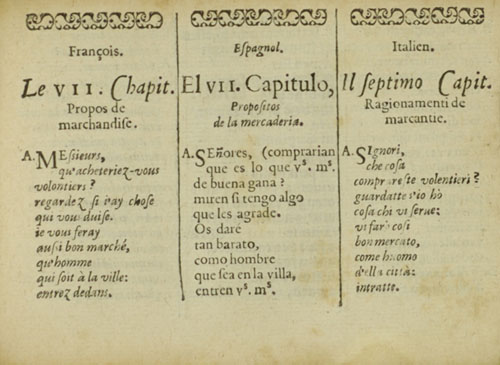 François.
Le VII. Chapit.
Propos de
marchandiſe.
A. MEſsieurs,
qu'acheteriez-vous
volontieri?
regardez ſi i'ay choſe
qui vous duiſe.
ie vous feray
auſsi bon marché,
qu'homme
qui ſoit à la ville:
entrez dedans.
Eſpagnol.
El VII. Capitulo,
Propoſitos
de la mercaderia.
A. SEñores, (comprarian
que es lo que vˢ. mˢ.
de buena gana?
miren ſi tengo algo
que les agrade.
Os daré
tan barato,
como hombre
que ſea en la villa,
entren vˢ. mˢ.
Italien.
Il ſeptimo Capit.
Ragionamenti de
marcantie.
A. SIgnori,
che coſa
comprareste volentieri?
guardatte s'io hò
coſa chi vi ſerue:
vi farò coſi
bon mercato,
come huomo
d'ella città:
intratte.